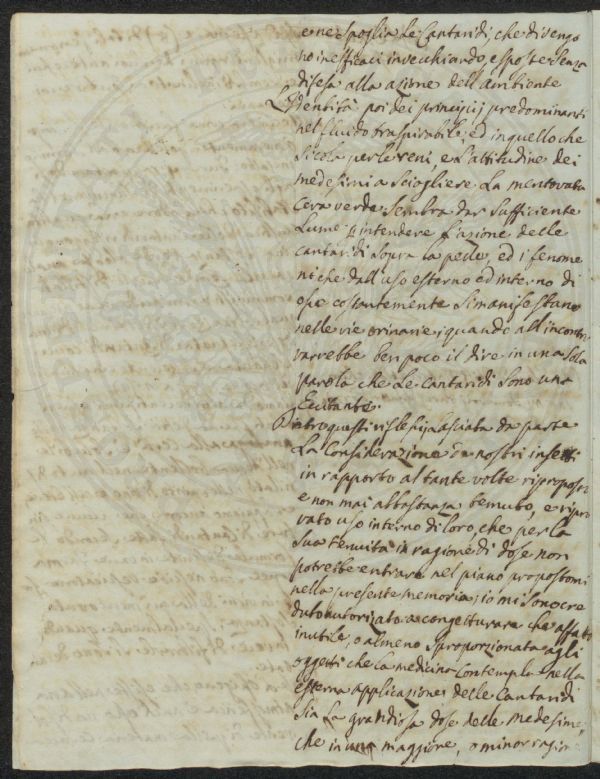 e ne spoglia le Cantaridi, che divengo
no inefficaci invecchiando, esposte senza
difesa alla azione dell'ambiente
L'identità poi dei principij predominanti
nel fluido traspirabile, ed in quello che
si cola per le reni, e l'attitudine dei
medesimi a sciogliere la mentovata
cera verde sembra dar sufficiente
lume intendere l'azione delle
cantaridi sopra la pelle, ed i fenome
ni che dall'uso esterno ed interno di
esse costantemente si manifestano
nelle vie orinarie; quando all'incontro
varrebbe ben poco il dire in una sola
parola che le cantaridi sono una
Ecitante.
lasciata da parte
la considerazione de nostri insetti
in rapporto al tante volte riproposto
e non mai abbastanza temuto, e ripro
vato uso interno di loro, che per la
sua tenuità in ragione di dose non
potrebbe entrare nel piano propostomi
nella presente memoria; io mi sono cre
duto autorizato a congetturare che affatto
inutile, o almeno sproporzionata agli
oggetti che la medicina contempla nella
esterna applicazione delle Cantaridi
sia la grandiosa dose delle medesime,
che in una maggiore, o minor ragione